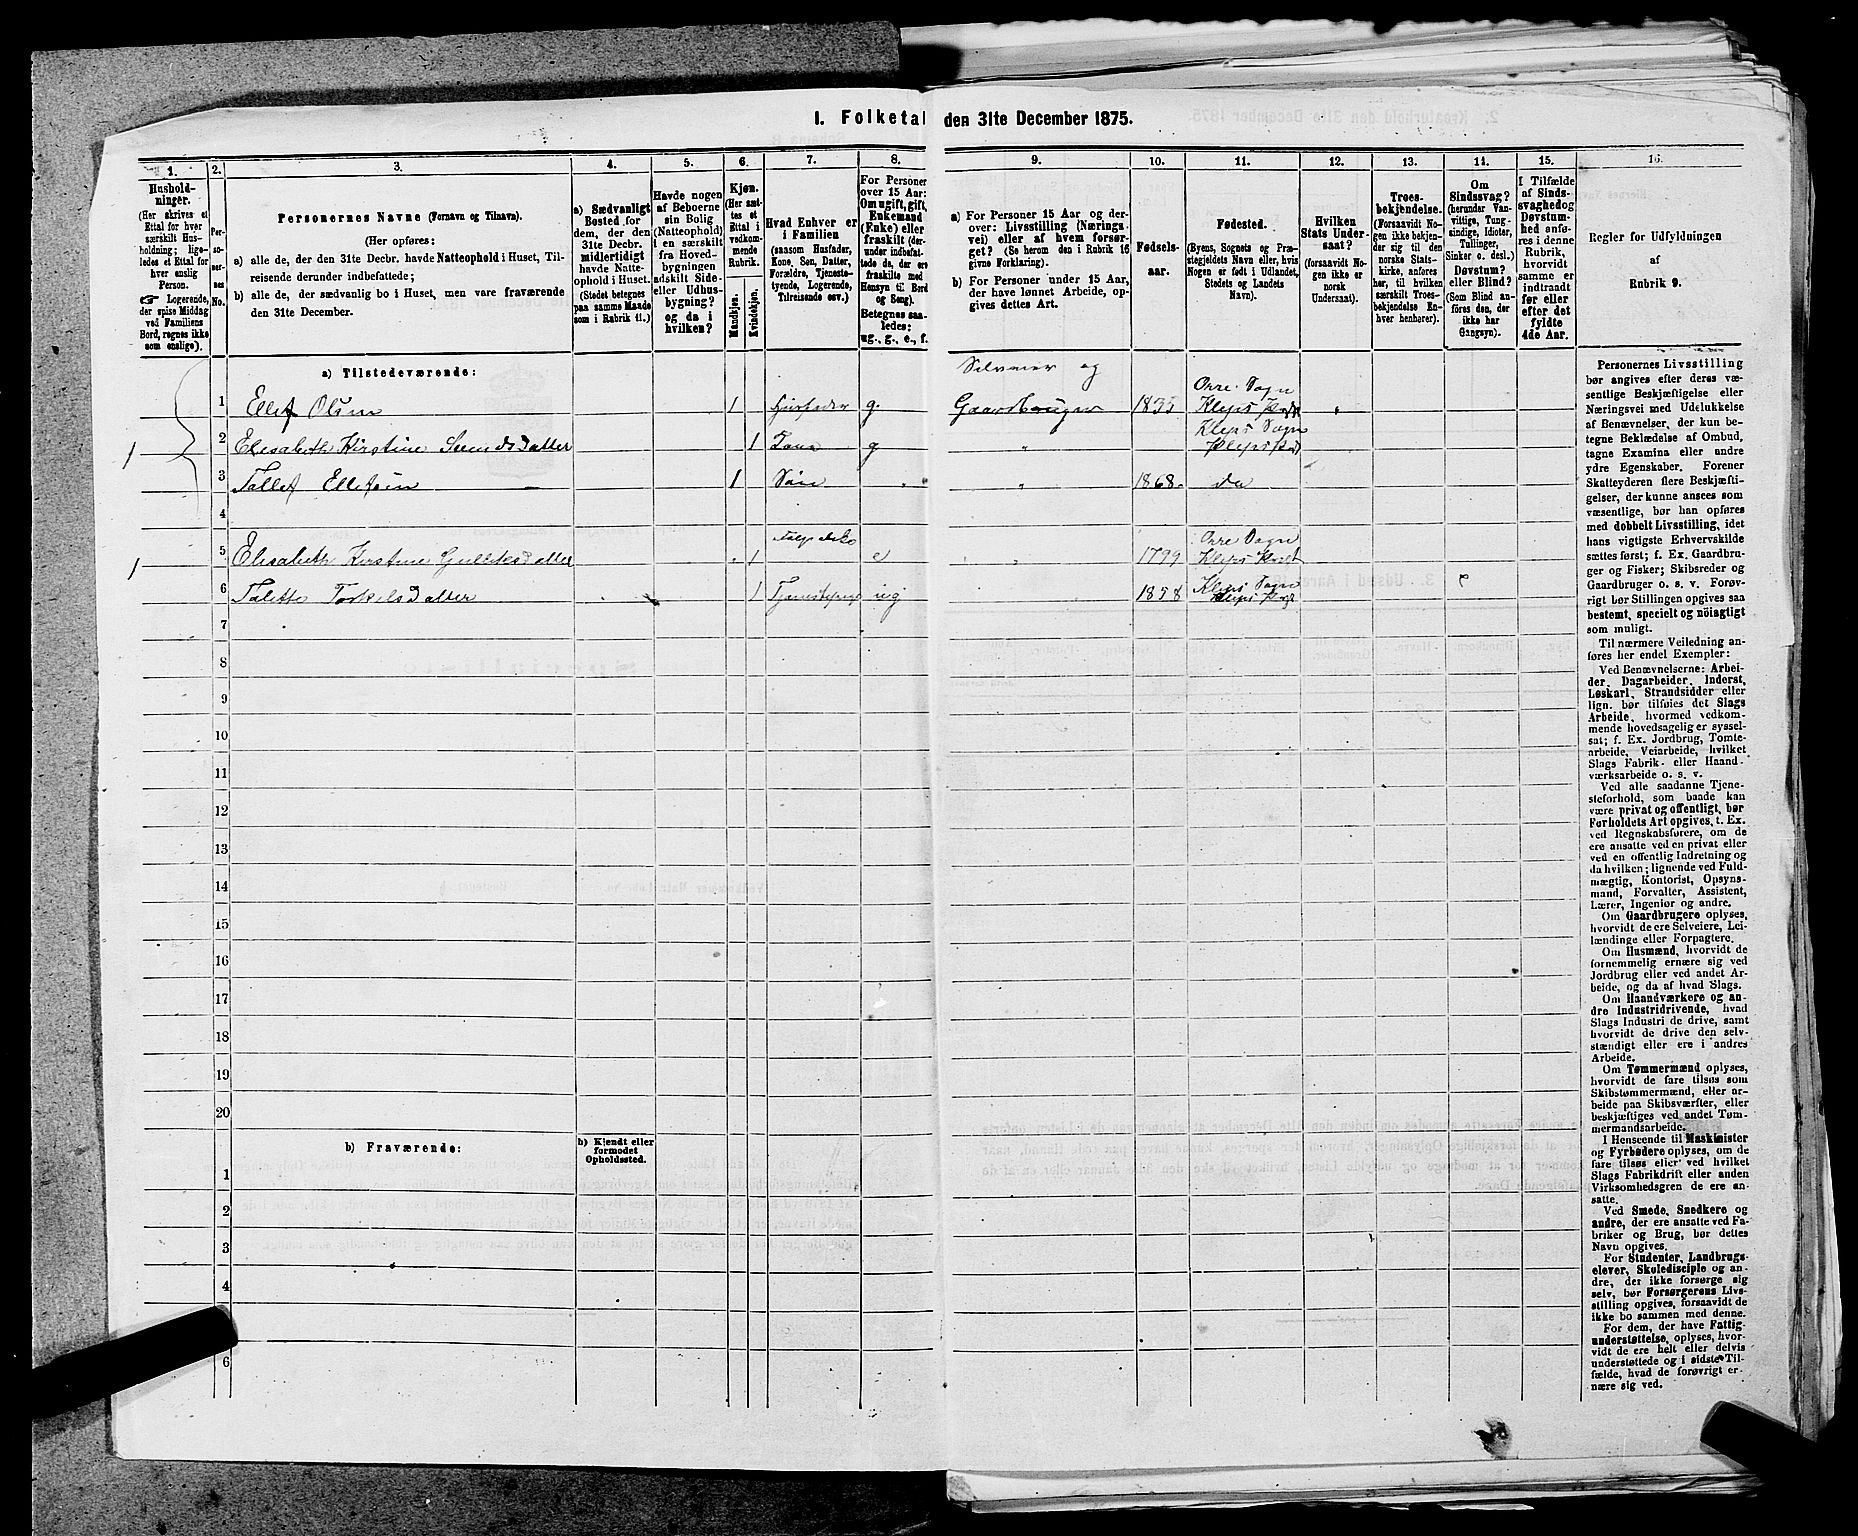 1. Folketal den 31te December 1875.
1.
2.
3.
4.
5.
6.
7.
8.
9.
10.
11.
12.
13.
14.
15.
16.
Husholdninger.
(Her skrives et
Ettal for hver
særskilt Husholdning;
ligeledes
et Ettal for
hver enslig
Person.
☞ Logerende,
der spise Middag
ved Familiens
Bord, regnes ikke
som enslige).
Personernes
No.
Personernes Navne (Fornavn og Tilnavn).
(Her opføres:
a) alle de, der den 31te Decbr. havde Natteophold i Huset, Tilreisende
derunder indbefattede;
b) alle de, der sædvanlig bo i Huset, men vare fraværende
den 31te December.
a) Sædvanligt
Bosted for
dem, der den
31te Decbr.
midlertidigt
havde Natteophold
i Huset.
(Stedet betegnes
paa samme Maade
som i Rubrik 11.)
Havde nogen
af Beboerne
sin Bolig
(Natteophold)
i en særskilt
fra Hovedbygningen
adskilt Side-
eller Udhusbygning?
og da i
hvilken?
Kjøn.
(Her sættes
et
Ettal i
vedkommende
Rubrik.
Mandkjøn.
Kvindekjøn.
Hvad Enhver er
i Familien
(saasom Husfader,
Kone, Søn, Datter,
Forældre, Tjenestetyende,
Logerende,
Tilreisende osv.)
For Personer
over 15 Aar:
Om ugift, gift,
Enkemand
(Enke) eller
fraskilt (derunder
indbefattede
de, der ere
fraskilte med
Hensyn til Bord
og Seng).
Betegnes saaledes:
ug., g., e., f.
a) For Personer 15 Aar og derover:
Livsstilling (Næringsvei)
eller af hvem forsørget?
(Se herom den i Rubrik 16
givne Forklaring).
b) For Personer under 15 Aar,
der have lønnet Arbeide, opgives
dettes Art.
Fødselsaar.
Fødested.
(Byens, Sognets og Præstegjeldets
Navn eller, hvis
Nogen er født i Udlandet,
Stedets og Landets
Navn).
Hvilken
Stats Undersaat?
(forsaavidt Nogen
ikke er
norsk
Undersaat).
Troesbekjendelse.
(Forsaavidt Nogen
ikke bekjender
sig til den
norske Statskirke,
anføres
her, til hvilken
særskilt Troesbekjendelse
Enhver
henhører).
Om
Sindssvag?
(herunder Vanvittige,
Tungsindige,
Idioter,
Tullinger,
Sinker o. desl.)
Døvstum?
eller Blind?
(Som Blind anføres
den, der
ikke har
Gangsyn).
I Tilfælde
af Sindssvaghed
og
Døvstumhed
anføres
i denne
Rubrik,
hvorvidt
samme er
indtraadt
før eller
efter det
fyldte
4de Aar.
Regler for Udfyldningen
af
Rubrik 9.
a) Tilstedeværende:
Selveier og
1 Ellef Olsen 1 Husfader g. Gaardbruger 1835 Orre Sogn Kleps Præst
1 2 Elisabeth Kirstine 1 Kone g " Kleps Sogn Kleps Præst
3 Tollef Ellefsen 1 Søn " 1868 do
4
1 5 Elisabeth Kirstine 1 e " 1799 Orre Sogn Kleps Præst
6 Talette Torkelsdatter 1 ug 1858 Kleps Sogn Kleps Præst
7
8
9
10
11
12
13
14
15
16
17
18
19
20
b) Fraværende:
b) Kjendt eller
formodet
Opholdssted.
1
2
3
4
6
Personernes Livsstilling
bør angives efter deres væsentlige
Beskjæftigelse eller
Næringsvei med Udelukkelse
af Benævnelser, der kun betegne
Beklædelse af Ombud,
tagne Examina eller andre
ydre Egenskaber. Forener
Skatteyderen flere Beskjæftigelser,
der kunne ansees som
væsentlige, bør han opføres
med dobbelt Livsstilling, idet
hans vigtigste Erhvervskilde
sættes først; f. Ex. Gaardbruger
og Fisker; Skibsreder og
Gaardbruger o. s. v. Forøvrigt
bør Stillingen opgives saa
bestemt, specielt og nøiagtigt
som muligt.
Til nærmere Veiledning anføres
her endel Exempler:
Ved Benævnelserne: Arbeider,
Dagarbeider, Inderst,
Løskarl, Strandsidder eller
lign. bør tilføies det Slags
Arbeide, hvormed vedkommende
hovedsagelig er sysselsat;
f. Ex. Jordbrug, Tomtearbeide,
Veiarbeide, hvilket
Slags Fabrik- eller Haandværksarbeide
o. s. v.
Ved alle saadanne Tjenesteforhold,
som baade kan
være privat og offentligt, bør
Forholdets Art opgives, t. Ex.
ved Regnskabsførere, om de
ere ansatte ved en privat eller
ved en offentlig Indretning og
da hvilken; lignende ved Fuldmægtig,
Kontorist, Opsynsmand,
Forvalter, Assistent,
Lærer, Ingeniør og andre.
Om Gaardbrugere oplyses,
hvorvidt de ere Selveiere, Leilændinge
eller Forpagtere.
Om Husmænd, hvorvidt de
fornemmelig ernære sig ved
Jordbrug eller ved andet Arbeide,
og da af hvad Slags.
Om Haandværkere og andre
Industridrivende, hvad
Slags Industri de drive, samt
hvorvidt de drive den selvstændigt
eller ere i andres
Arbeide.
Om Tømmermænd oplyses,
hvorvidt de fare tilsøs som
Skibstømmermænd, eller arbeide
paa Skibsværfter, eller
beskjæftiges ved andet Tømmermandsarbeide.
I Henseende til Maskinister
og Fyrbødere oplyses, om de
fare tilsøs eller ved hvilket
Slags Fabrikdrift eller anden
Virksomhedsgren de ere ansatte.
Ved Smede, Snedkere og
andre, der ere ansatte ved Fabriker
og Brug, bør dettes
Navn opgives.
For Studenter, Landbrugselever,
Skoledisciple og andre,
der ikke forsørge sig
selv, bør Forsørgerens Livsstilling
opgives, forsaavidt de
ikke bo sammen med denne.
For dem, der have Fattigunderstøttelse,
oplyses, hvorvidt
de ere helt eller delvis
understøttede og i sidste Tilfælde,
hvad de forøvrigt ernære
sig ved.